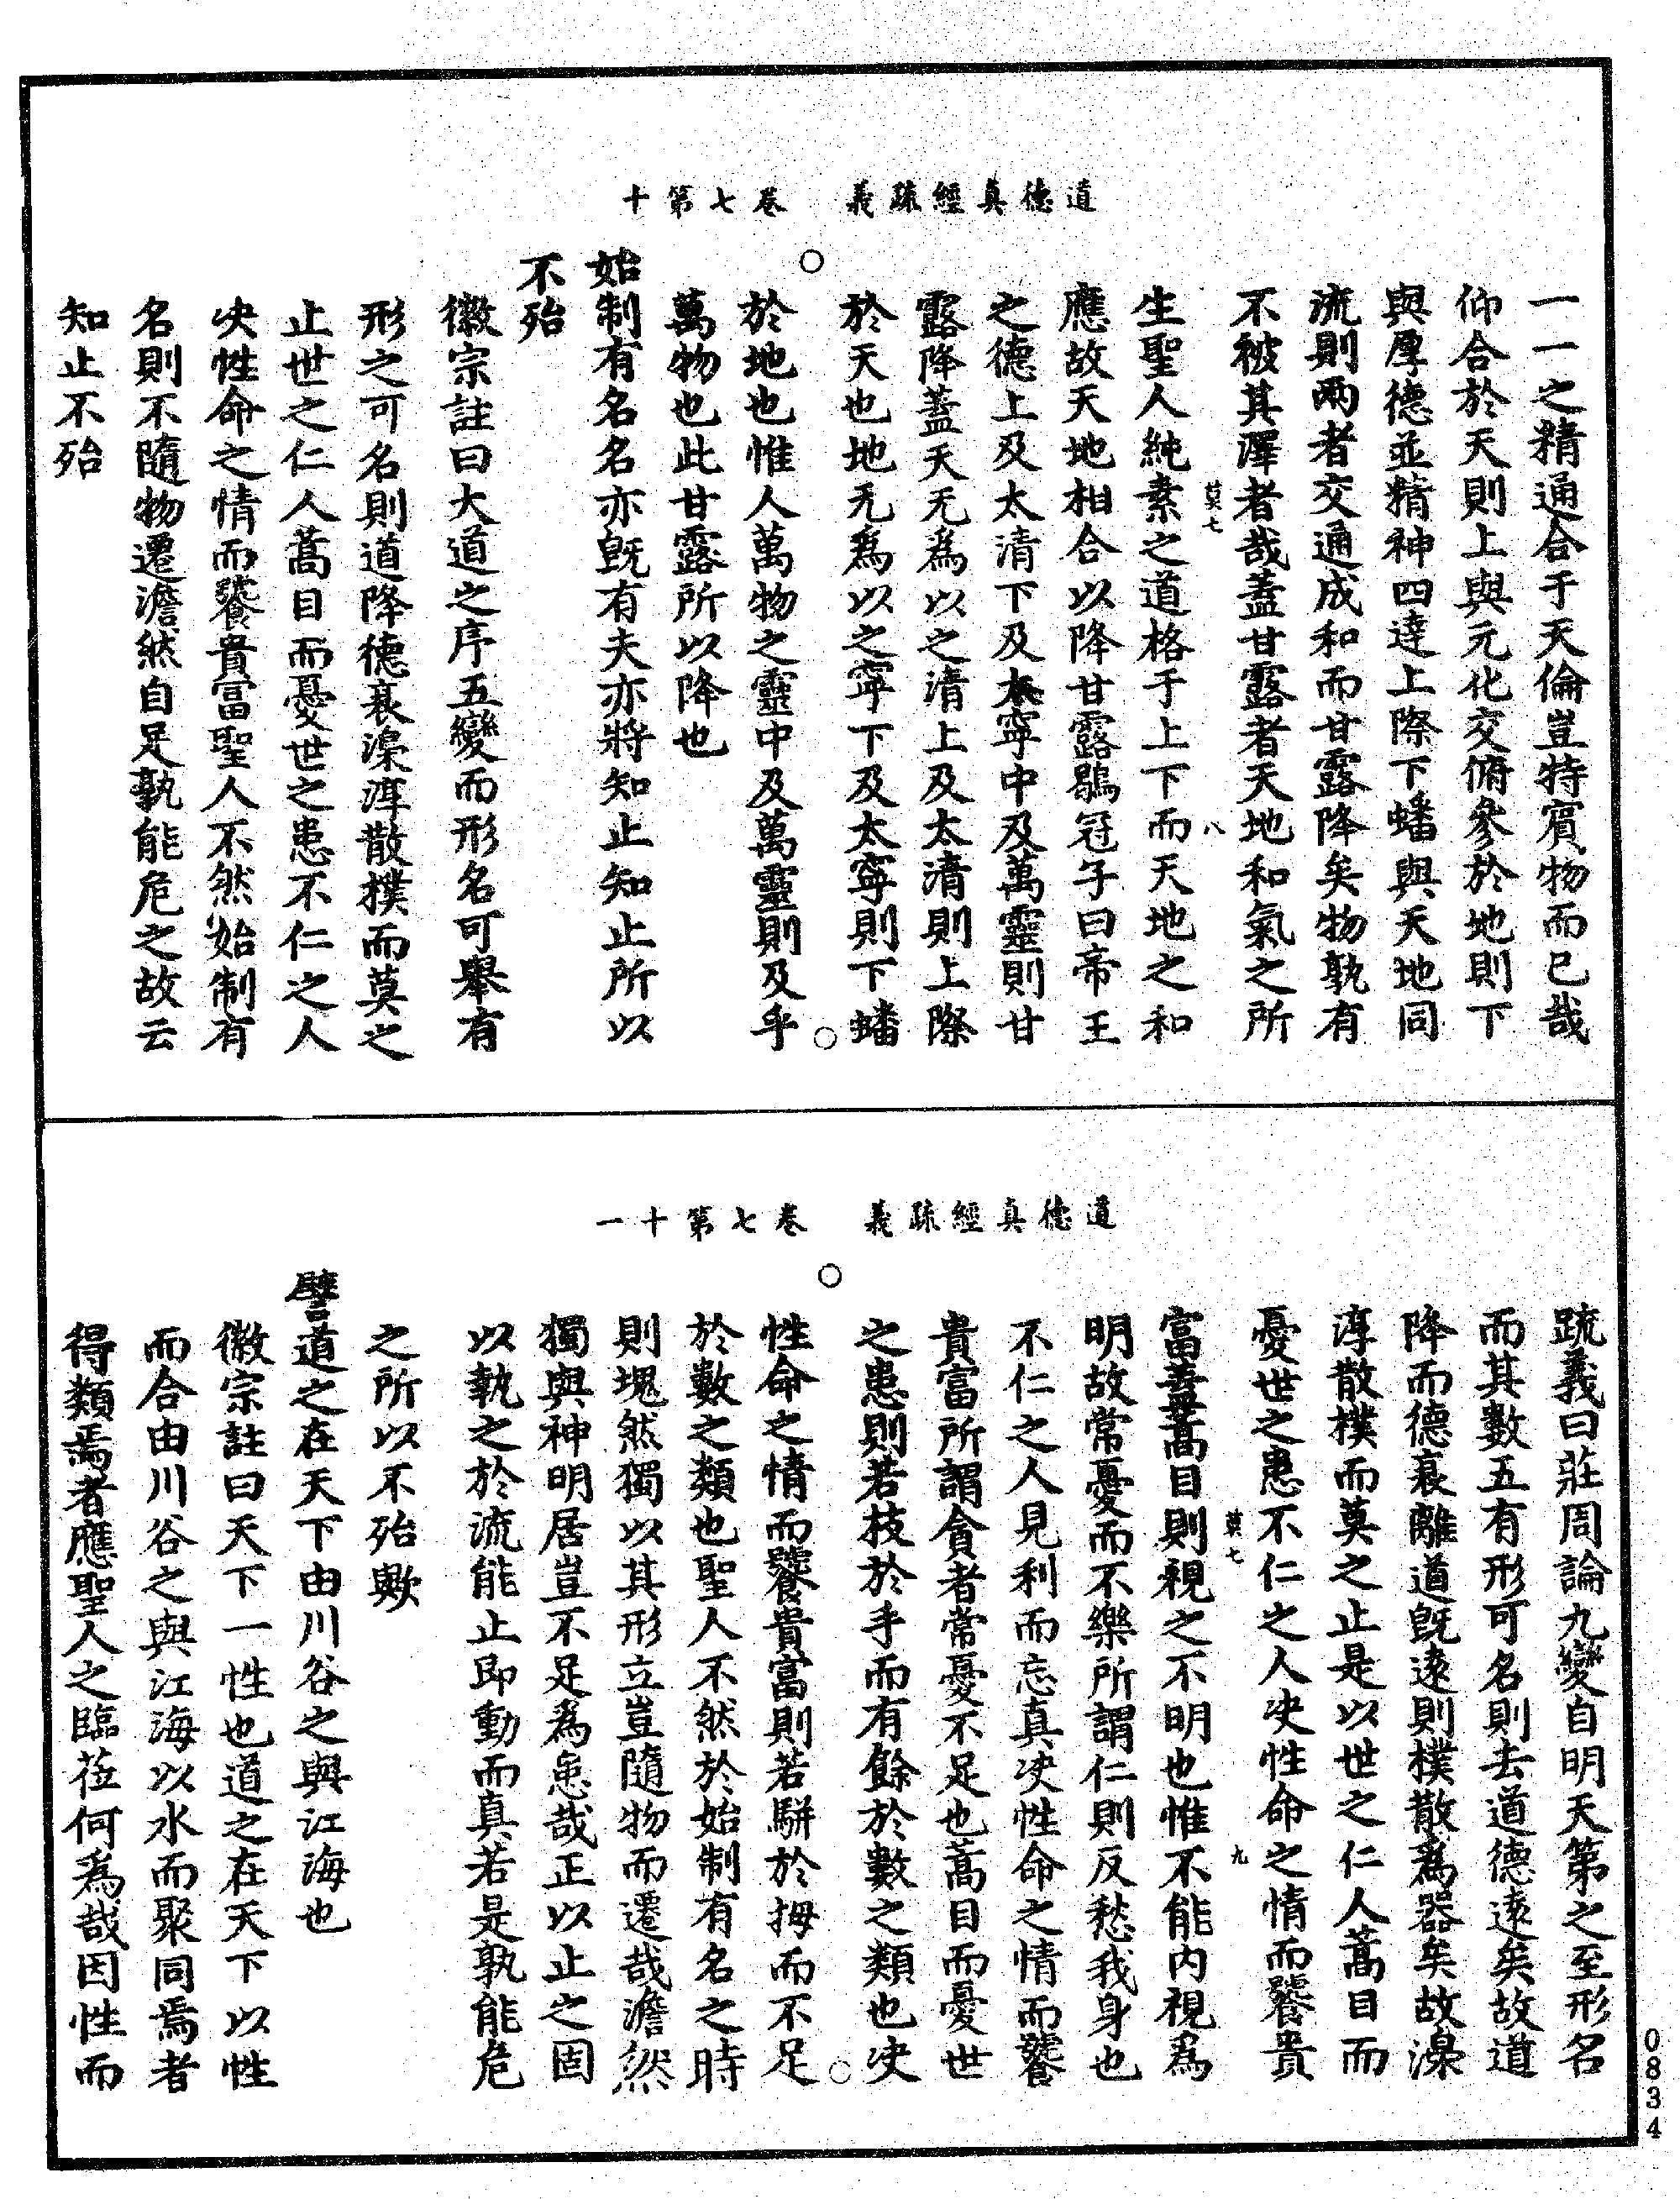 道德真經疏義　卷七第十
一一之精通合于天倫豈特賓物而已哉
仰合於天則上與元化交俯參於地則下
與厚德並精神四達上際下蟠與天地同
流則兩者交通成和而甘露降矣物孰有
不被其澤者哉蓋甘露者天地和氣之所
莫七　八
生聖人純素之道格于上下而天地之和
應故天地相合以降甘露鶡冠子曰帝王
之德上及太清下及太寧中及萬靈則甘
露降蓋天无為以之清上及太清則上際
於天也地无為以之寧下及太寧則下蟠
於地也惟人萬物之靈中及萬靈則及乎
萬物也此甘露所以降也
始制有名名亦既有夫亦將知止知止所以
不殆
徽宗註曰大道之序五變而形名可舉有
形之可名則道降德衰澆淳散樸而莫之
止世之仁人蒿目而憂世之患不仁之人
决性命之情而饕貴富聖人不然始制有
名則不隨物遷澹然自足孰能危之故云
知止不殆
道德真經疏義　卷七第十一
疏義曰莊周論九變自明天第之至形名
而其數五有形可名則去道德遠矣故道
降而德衰離道既遠則樸散為器矣故澆
淳散樸而莫之止是以世之仁人蒿目而
憂世之患不仁之人决性命之情而饕貴
莫七　九
富蓋蒿目則視之不明也惟不能内視為
明故常憂而不樂所謂仁則反愁我身也
不仁之人見利而忘真决性命之情而饕
貴富所謂貪者常憂不足也蒿目而憂世
之患則若技於手而有餘於數之類也决
性命之情而饕貴富則若駢於拇而不足
於數之類也聖人不然於始制有名之時
則塊然獨以其形立豈隨物而遷哉澹然
獨與神明居豈不足為患哉正以止之固
以執之於流能止即動而真若是孰能危
之所以不殆歟
譬道之在天下由川谷之與江海也
徽宗註曰天下一性也道之在天下以性
而合由川谷之與江海以水而聚同焉者
得類焉者應聖人之臨莅何為哉因性而
0834